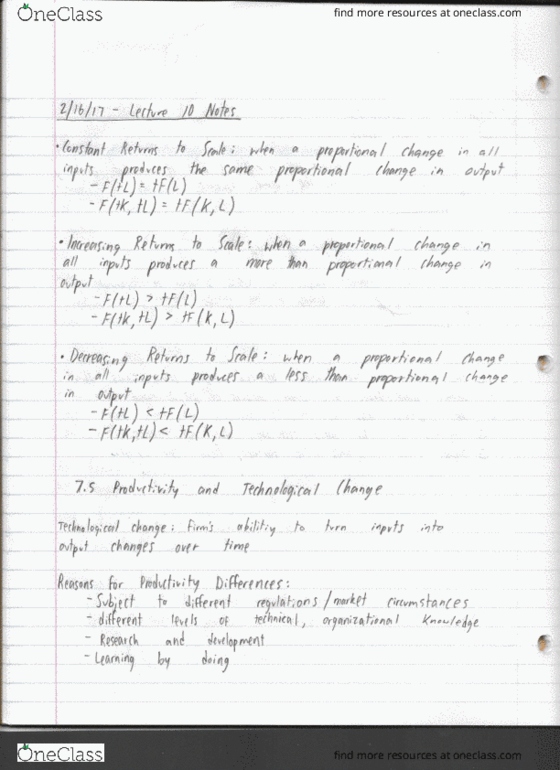 OneClass
find more resources at oneclass.com
2/16/17 - Lecture 10 Notes
• Constant Returns to Scale: when a proportional change in all
inputs produces the same proportional change in output
- F(tL) = tF(L)
- F(tK, tL) = tF(K, L)
• Increasing Returns to Scale: when a proportional change in
all inputs produces a more than proportional change in
output
- F(tL) > tF(L)
- F(tK, tL) > tF(K, L)
• Decreasing Returns to Scale: when a proportional change
in all inputs produces a less than proportional change
in output
- F(tL) < tF(L)
- F(tK, tL) < tF(K, L)
7.5 Productivity and Technological Change
Technological change: Firm's abilitiy to turn inputs into
output changes over time
Reasons for Productivity Differences:
- Subject to different regulations/market circumstances
- different levels of technical, organizational knowledge
- Research and development
- Learning by doing
OneClass
find more resources at oneclass.com